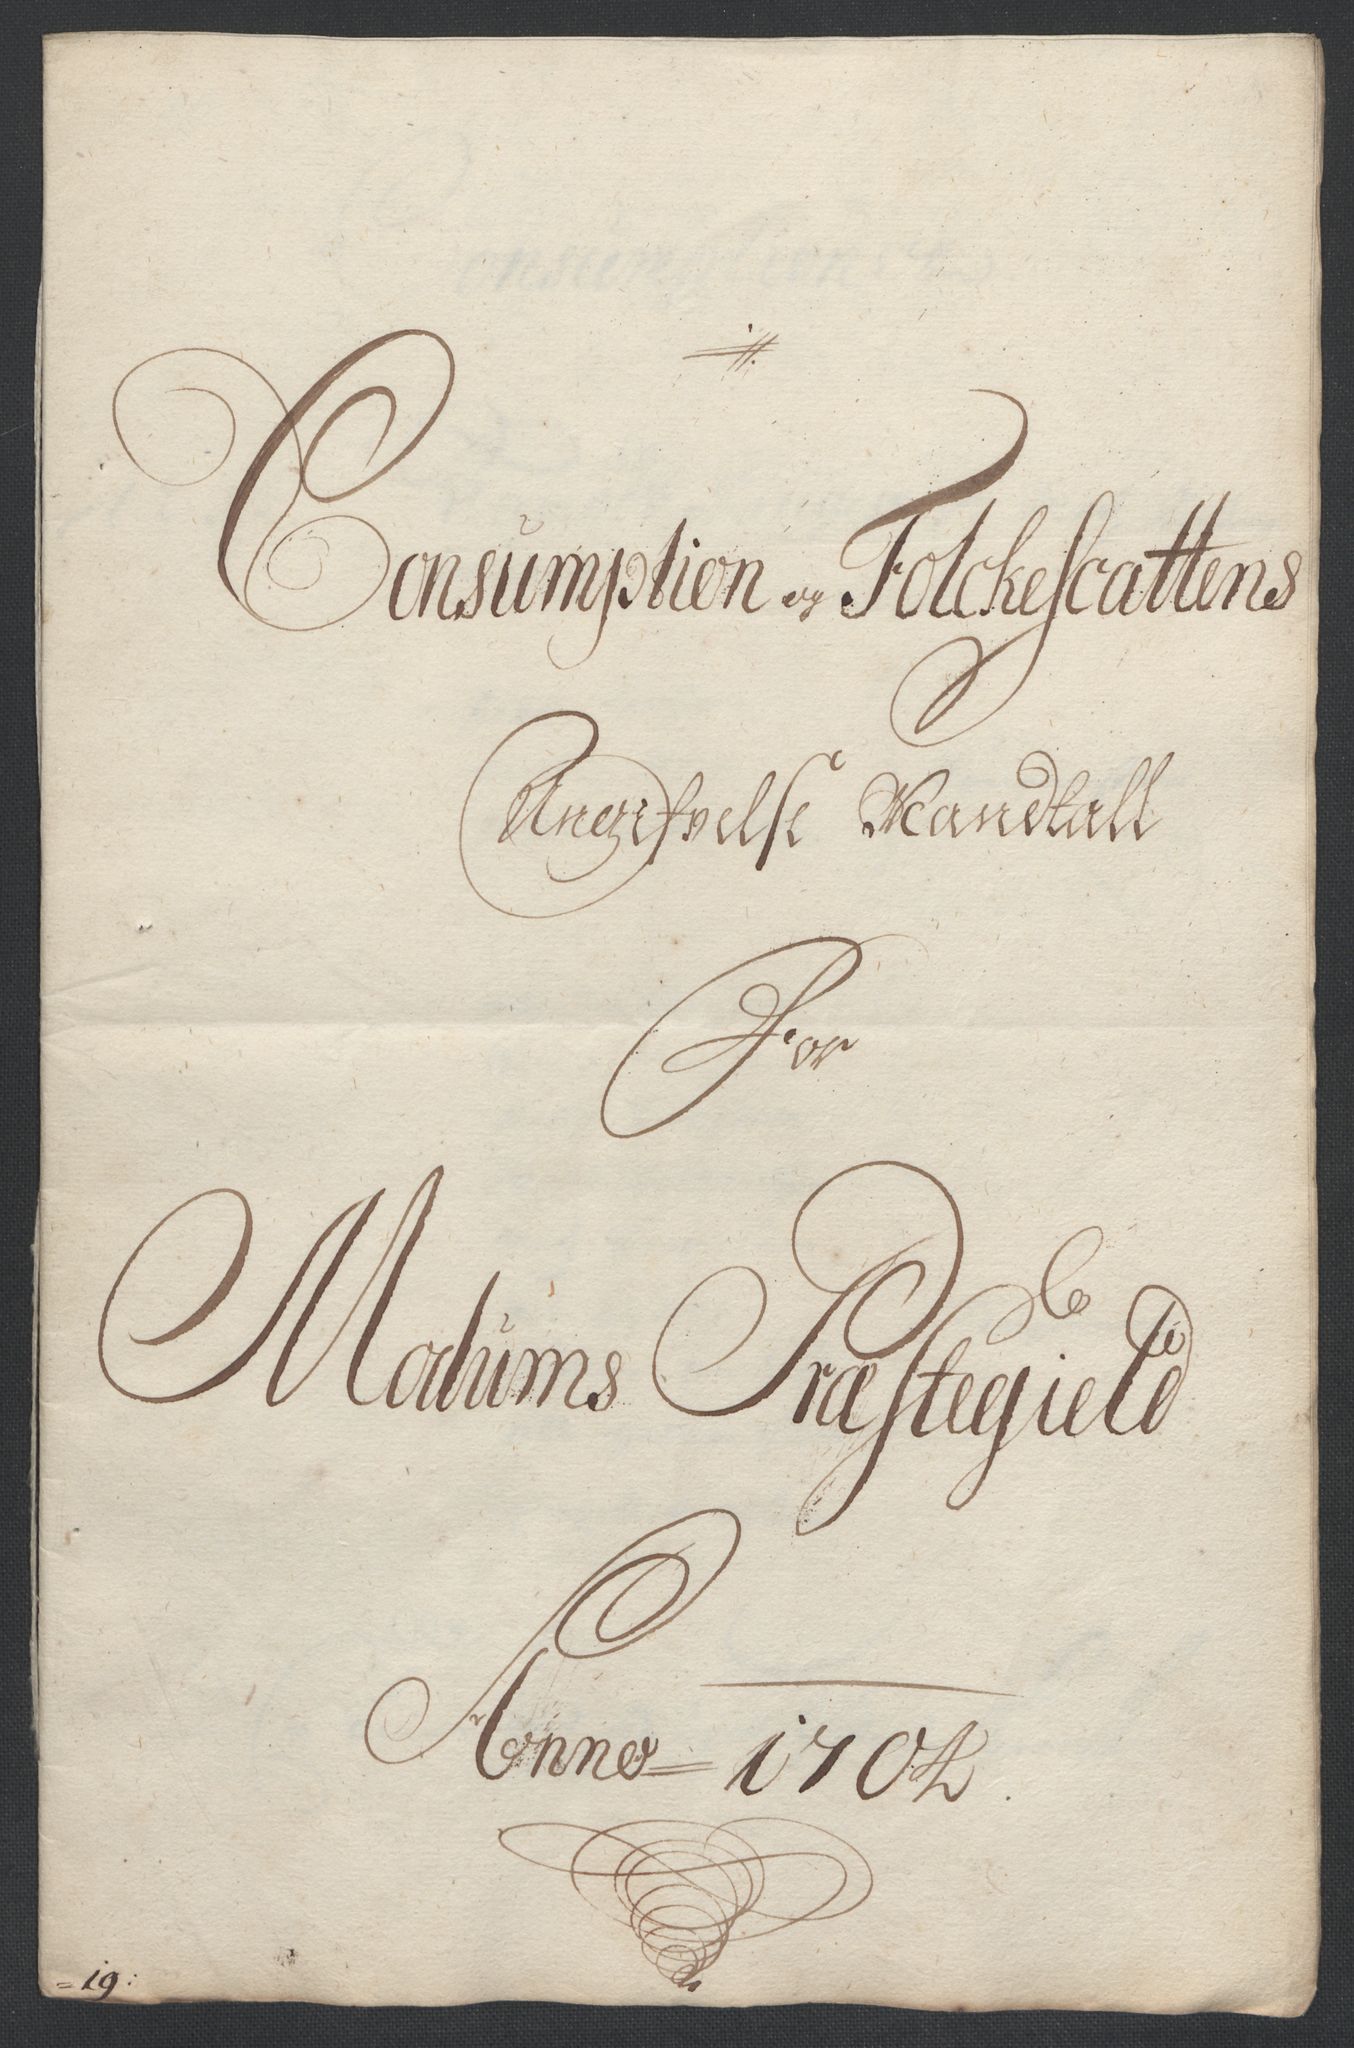 Consumption og Folckescattens
Angifvelse Mandtall
For
Modums Præstegield
Anno = 1704.
= 19: